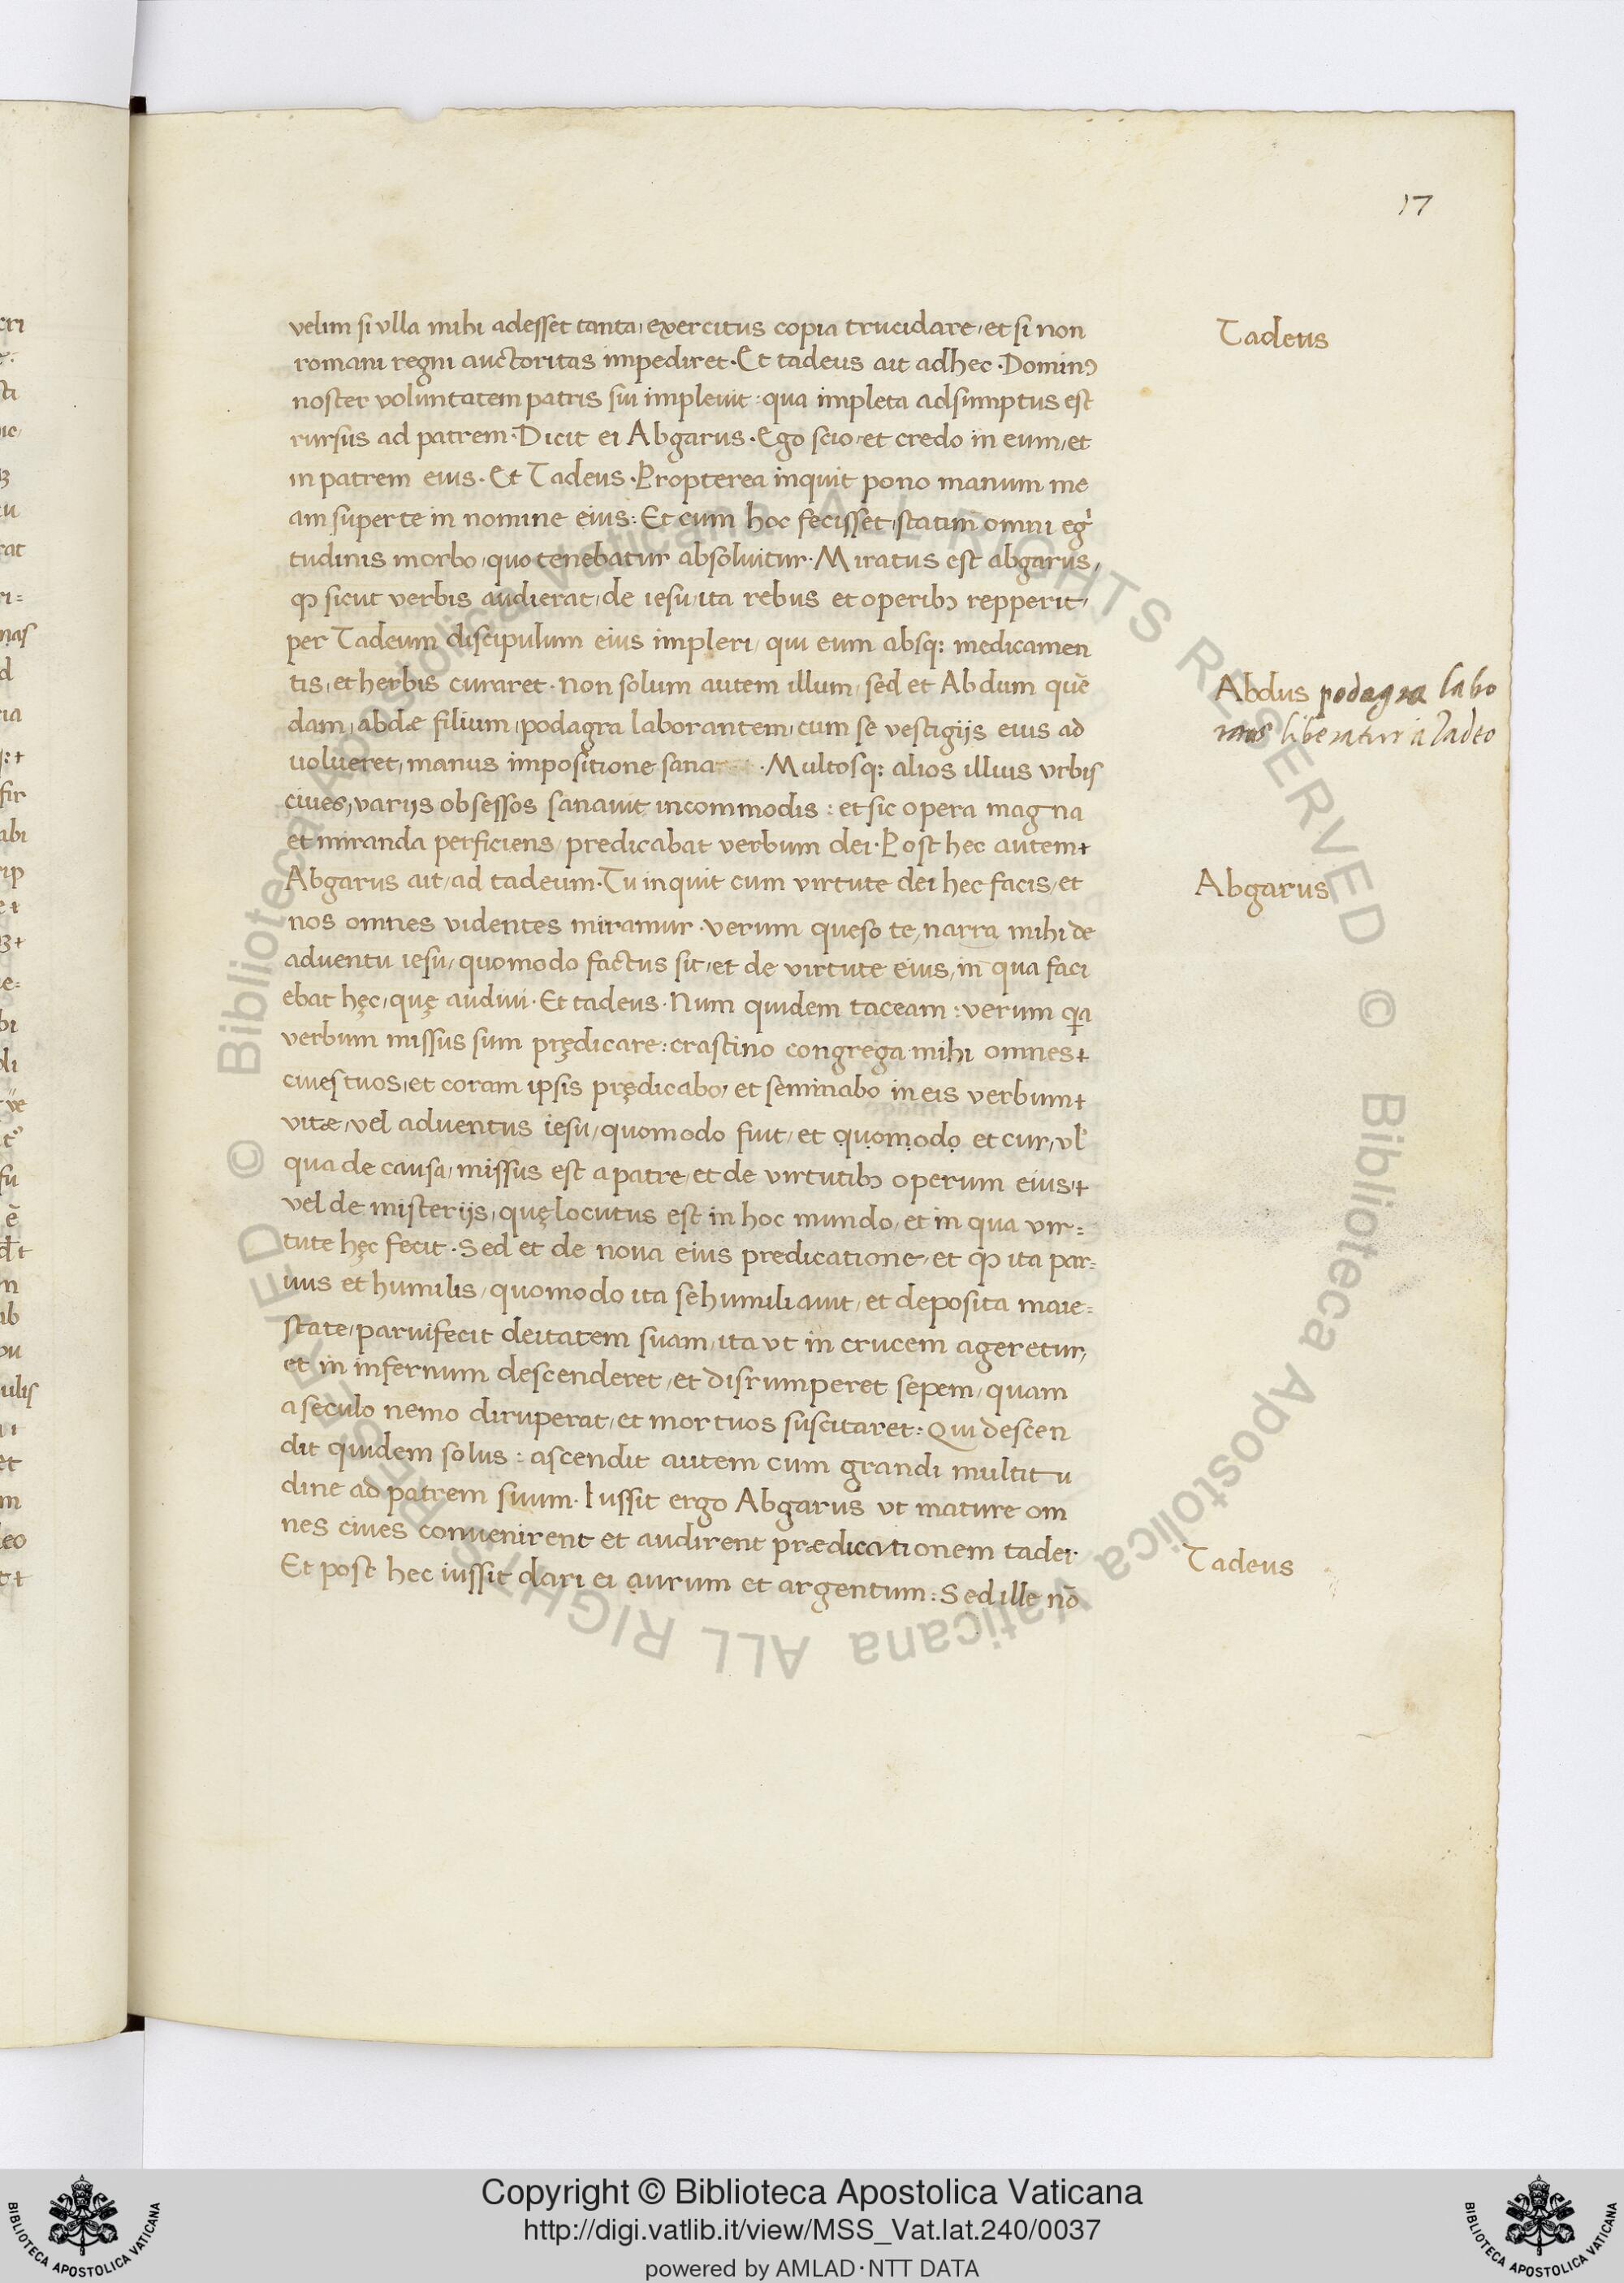 17
velim si ulla mihi adesset tanta, exercitus copia trucidare, et si non
romani regni auctoritas impediret. Et tadeus ait ad hec. Dominꝰ
noster voluntatem patris sui implevit: qua impleta adsumptus est
rursus ad patrem. Dicit ei Abgarus. Ego scio, et credo in eum, et
in patrem eius. Et Tadeus. Propterea inquit pono manum me
am super te in nomine eius: Et cum hoc fecisset, statim omni egͥ
tudinis morbo, quo tenebatur absoluitur. Miratus est abgarus,
ꝙ sicut verbis audierat, de iesu, ita rebus et operibꝫ repperit,
per Tadeum discipulum eius impleri, qui eum absqꝫ medicamen
tis, et herbis curaret. Non solum autem illum, sed et Abdum quē
dam, abdæ filium, podagra laborantem, cum se vestigijs eius ad
uolueret, manus impositione sana . Multosqꝫ alios illius urbis
ciues, varijs obsessos sanauit incommodis: et sic opera magna
et miranda perficiens, predicabat verbum dei. Post hec autem
Abgarus ait, ad tadeum. Tu inquit cum virtute dei hec facis, et
nos omnes videntes miramur. verum queso te, narra mihi de
adventu iesu, quomodo factus sit, et de virtute eius, in qua faci
ebat hęc, quę audiui. Et tadeus. Num quidem taceam: verum qa
verbum missus sum prędicare: crastino congrega mihi omnes
ciues tuos, et coram ipsis prędicabo, et seminabo in eis verbum
vitæ, vel adventus iesu, quomodo fuit, et quomodo et cur, vl
qua de causa, missus est a patre, et de virtutibꝫ operum eius,
vel de misterijs, quę locutus est in hoc mundo, et in qua vir=
tute hęc fecit. Sed et de noua eius predicatione, et ꝙ ita par=
uus et humilis, quomodo ita se humiliauit, et deposita maie=
state, paruifecit deitatem suam, ita ut in crucem ageretur,
et in infernum descenderet, et disrumperet sepem, quam
a seculo nemo diruperat, et mortuos suscitaret: Qui descen
dit quidem solus: ascendit autem cum grandi multitu
dine ad patrem suum. Iussit ergo Abgarus ut mature om
nes ciues conuenirent et audirent prædicationem tadei.
Et post hec iussit dari ei aurum et argentum: Sed ille nō
Tadeus
Abdus podagra labo
rans liberatur a Tadeo
Abgarus
Tadeus
© Biblioteca Apostolica Vaticana ALL RIGHTS RESERVED
© Biblioteca Apostolica Vaticana ALL RIGHTS RESERVED
Copyright © Biblioteca Apostolica Vaticana
http://digi.vatlib.it/view/MSS_Vat.lat.240/0037
powered by AMLAD·NTT DATA
BIBLIOTECA APOSTOLICA VATICANA
BIBLIOTECA APOSTOLICA VATICANA